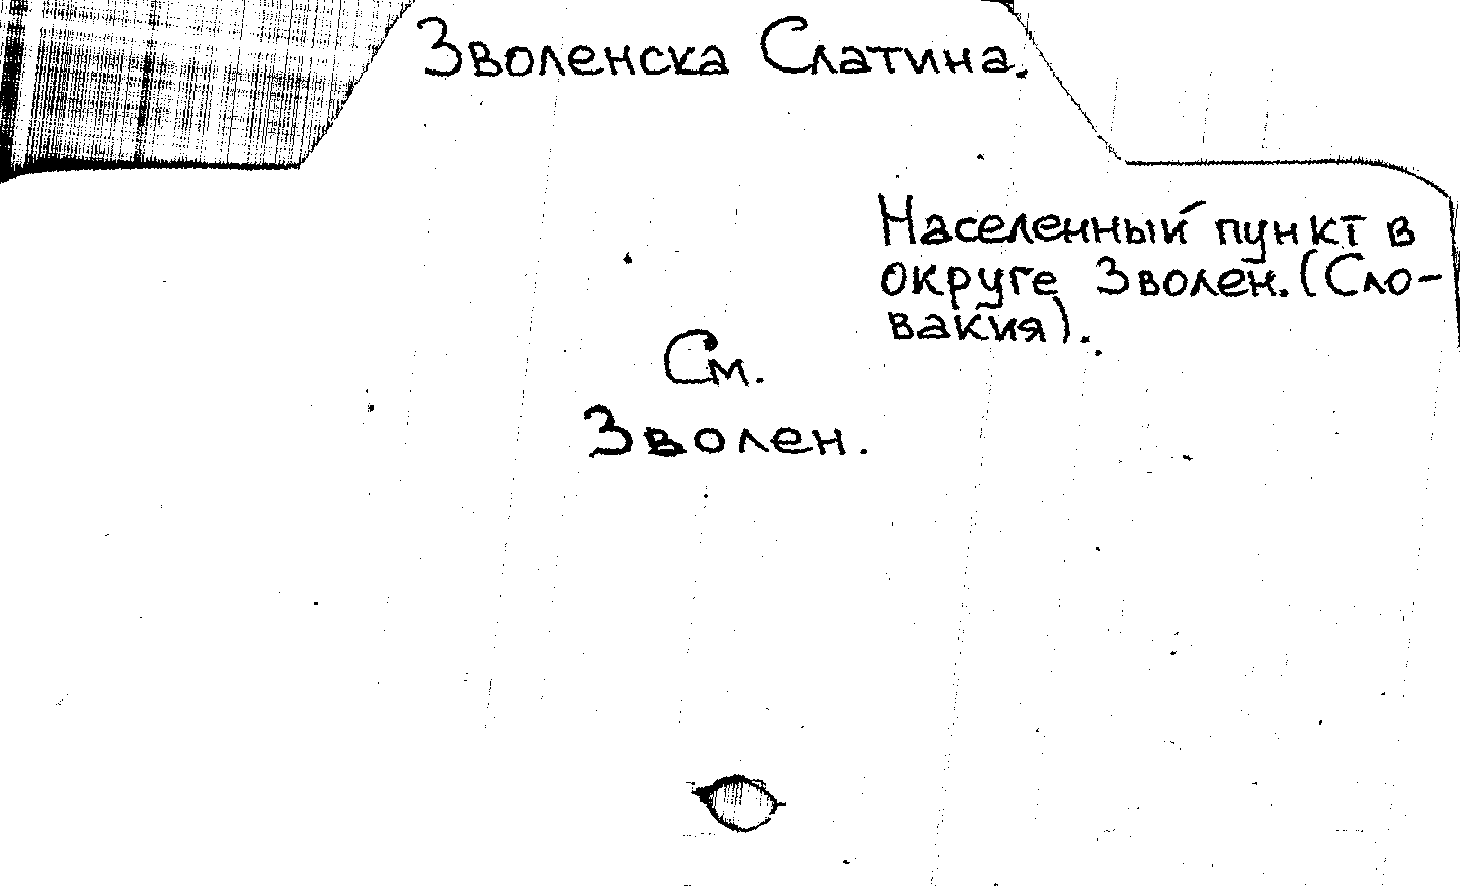 Зволенска Слатина.
Населенный пункт в
округе Зволен. (Сло-
вакия).
См.
Зволен.